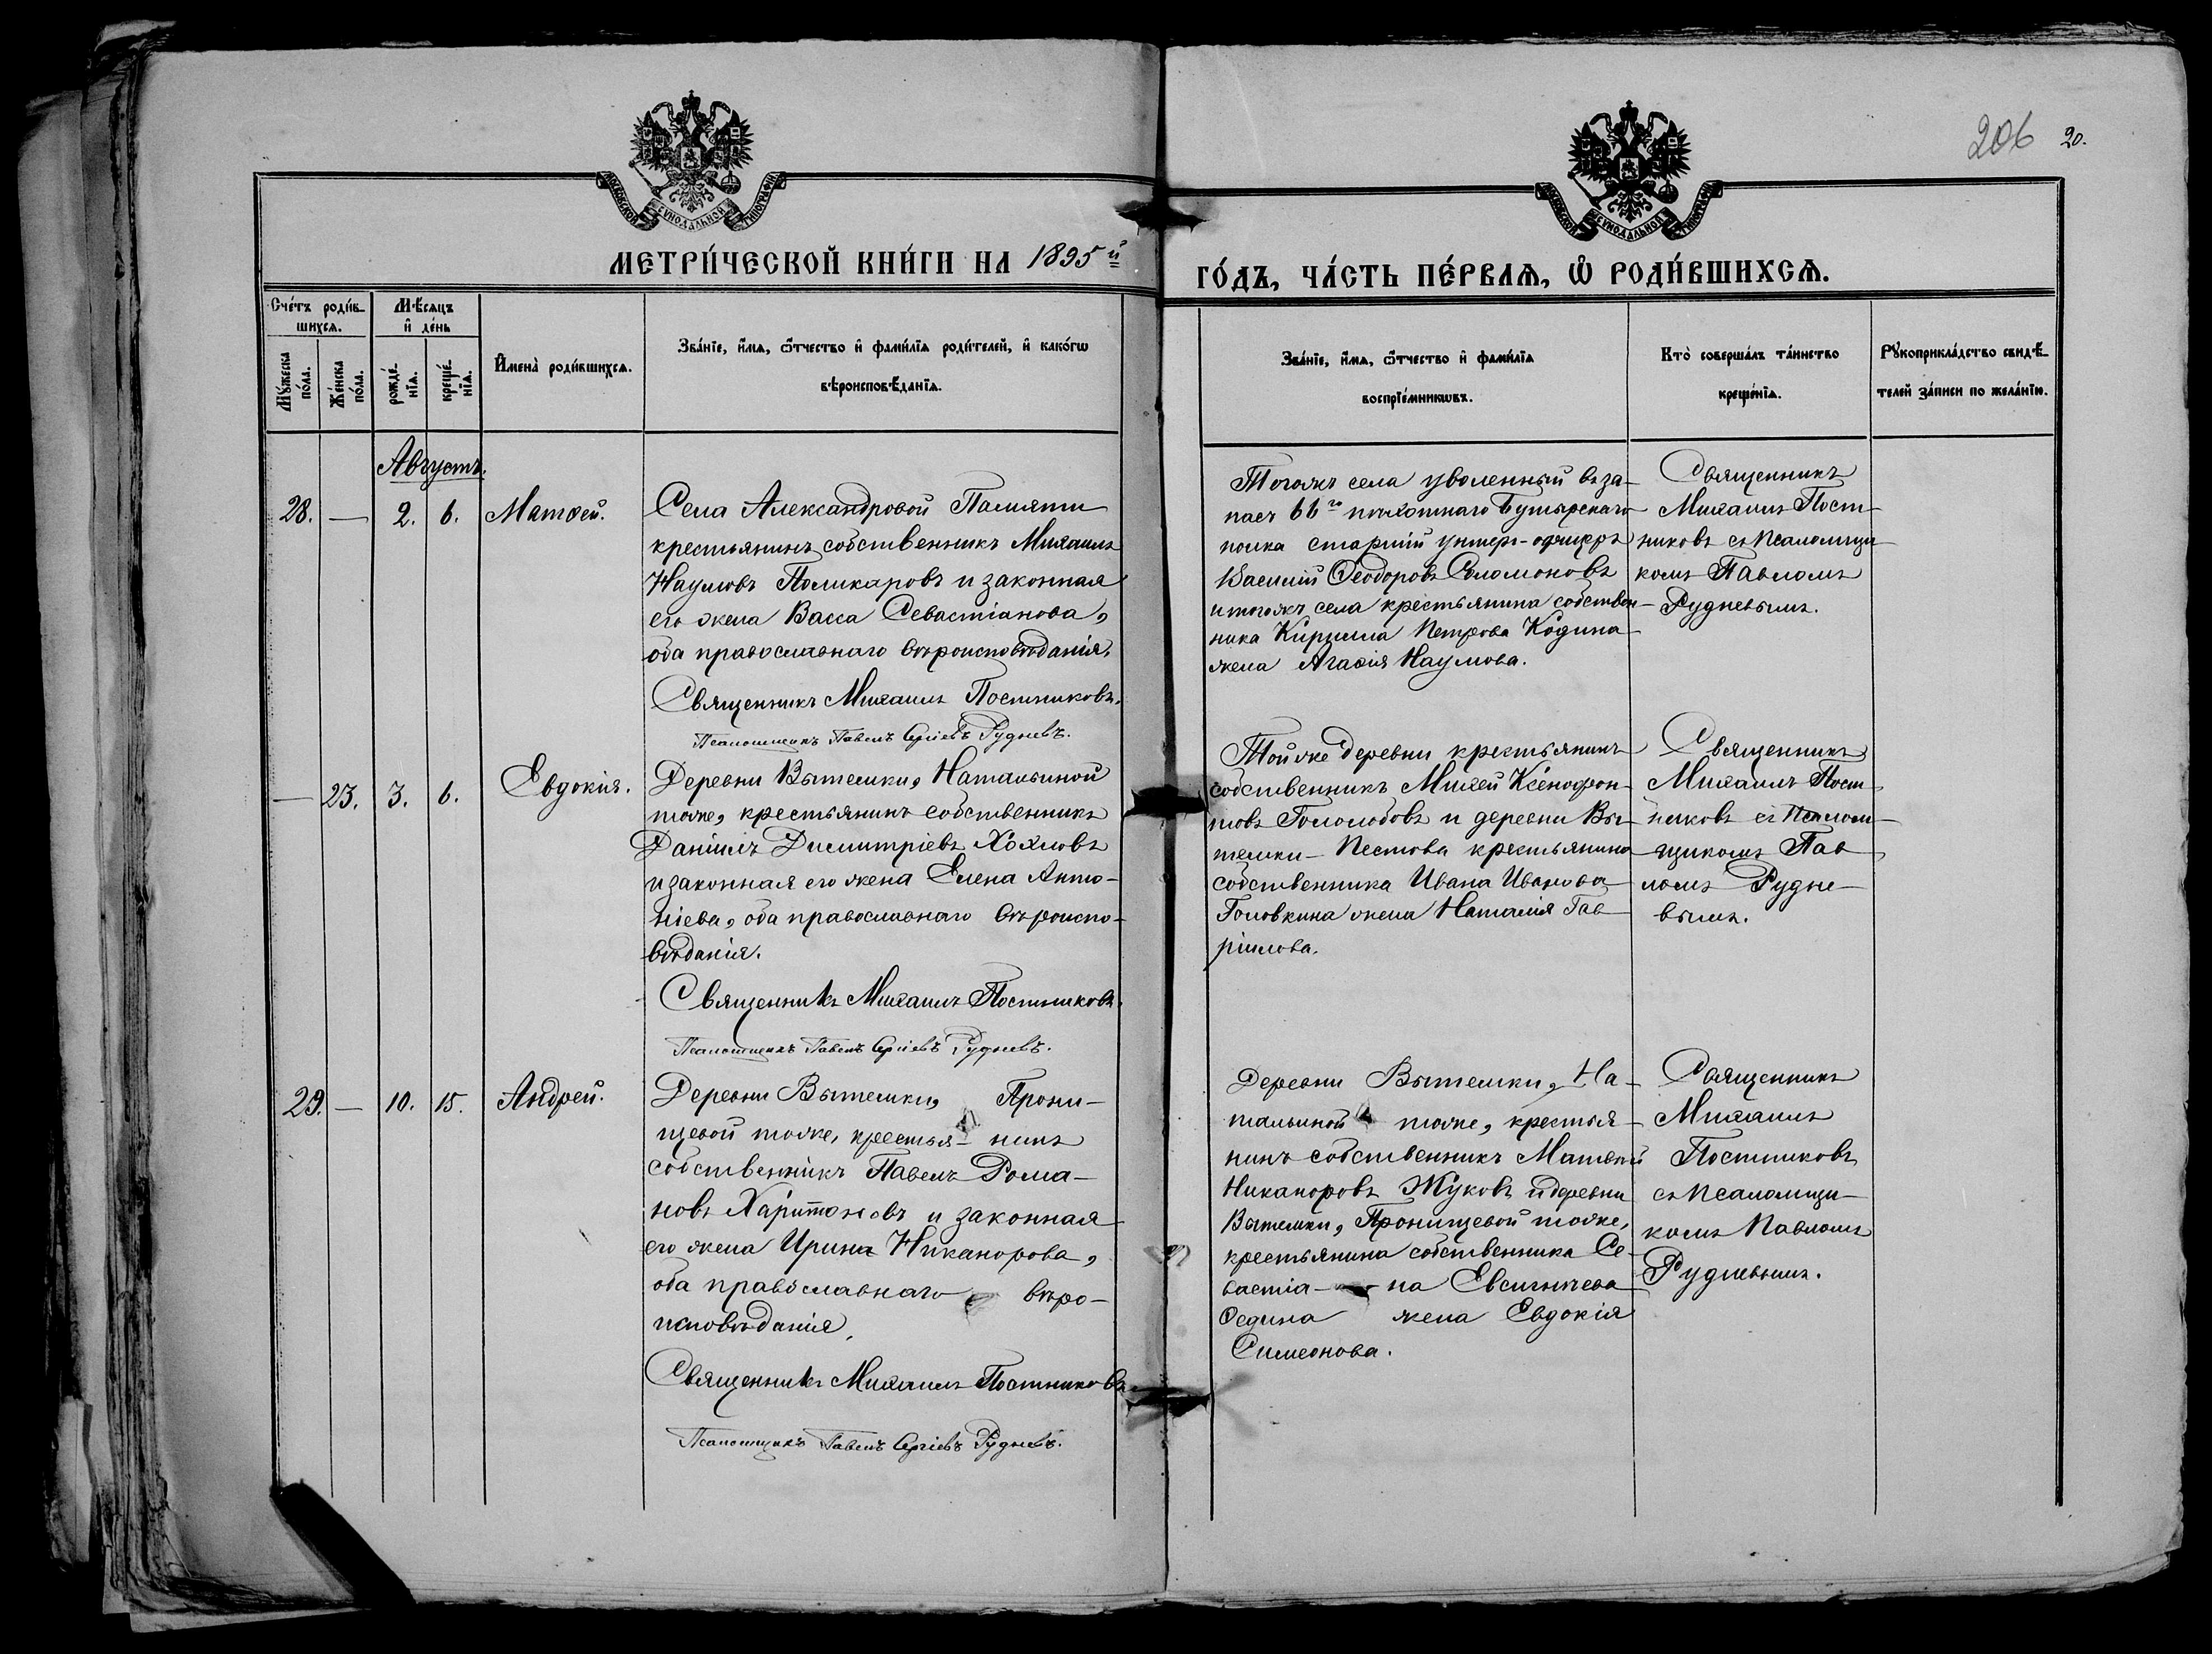 206 20.
МОСКОВСКОЙ СѴНОДАЛЬНОЙ ТИПОГРАФІИ
МОСКОВСКОЙ СѴНОДАЛЬНОЙ ТИПОГРАФІИ
МЕТРИ́ЧЕСКОЙ КНИ́ГИ НА 1895й
ГО́ДЪ, ЧА́СТЬ ПЕ́РВАѦ, Ѡ РОДИ́ВШИХСѦ.
Сче́тъ роди́в-
шихсѧ.
Мꙋ́жеска
по́ла.
Же́нска
по́ла.
Мѣ́сѧцъ
и де́нь
рожде́-
нїѧ.
креще́-
нїѧ.
Имена̀ роди́вшихсѧ.
Зва́нїе, и́мѧ, ѻ́тчество и фами́лїѧ роди́телей, и како́гѡ
вѣроисповѣ́данїѧ.
Зва́нїе, и́мѧ, ѻ́тчество и фами́лїѧ
воспрїе́мникѡвъ.
Кто̀ соверша́лъ та́инство
креще́нїѧ.
Рꙋкоприкла́дство свидѣ́-
телей за́писи по жела́нїю.
Августъ.
28. — 2. 6. Матѳей.
Села Александровой Памяти
крестьянинъ собственникъ Михаилъ
Наумовъ Поликаровъ и законная
его жена Васса Севастіанова,
оба православнаго вѣроисповѣданія.
Священникъ Михаилъ Постниковъ.
Псаломщикъ Павелъ Сергіевъ Рудневъ.
Тогожъ села уволенный въ за-
пасъ 66го пѣхотнаго Бутырскаго
полка старшій унтеръ-офицеръ
Василій Ѳеодоровъ Соломоновъ
и тогожъ села крестьянина собствен-
ника Кирилла Петрова Кодина
жена Агаѳія Наумова.
Священникъ
Михаилъ Пост-
никовъ съ псаломщи-
комъ Павломъ
Рудневымъ.
— 23. 3. 6. Евдокія.
Деревни Вытемки, Натальиной
тоже, крестьянинъ собственникъ
Даніилъ Димитріевъ Хохловъ
и законная его жена Елена Анто-
ніева, оба православнаго вѣроиспо-
вѣданія.
Священникъ Михаилъ Постниковъ.
Псаломщикъ Павелъ Сергіевъ Рудневъ.
Той же деревни крестьянинъ
собственникъ Михей Ксенофон-
товъ Гололобовъ и деревни Вы-
темки - Пестова крестьянина
собственника Ивана Иванова
Головкина жена Наталія Гав-
ріилова.
Священникъ
Михаилъ Пост-
никовъ съ псалом-
щикомъ Пав-
ломъ Рудне-
вымъ.
29. — 10. 15. Андрей.
Деревни Вытемки, Прони-
щевой тоже, крестья- нинъ
собственникъ Павелъ Рома-
новъ Харитоновъ и законная
его жена Ирина Никанорова,
оба православнаго вѣро-
исповѣданія.
Священникъ Михаилъ Постниковъ.
Псаломщикъ Павелъ Сергіевъ Рудневъ.
Деревни Вытемки, На-
тальиной тоже, крестья-
нинъ собственникъ Матѳей
Никаноровъ Жуковъ и деревни
Вытемки, Пронищевой тоже,
крестьянина собственника Се-
вастіа- на Евсигнѣева
Ѳедина жена Евдокія
Симеонова.
Священникъ
Михаилъ
Постниковъ
съ псаломщи-
комъ Павломъ
Рудневымъ.